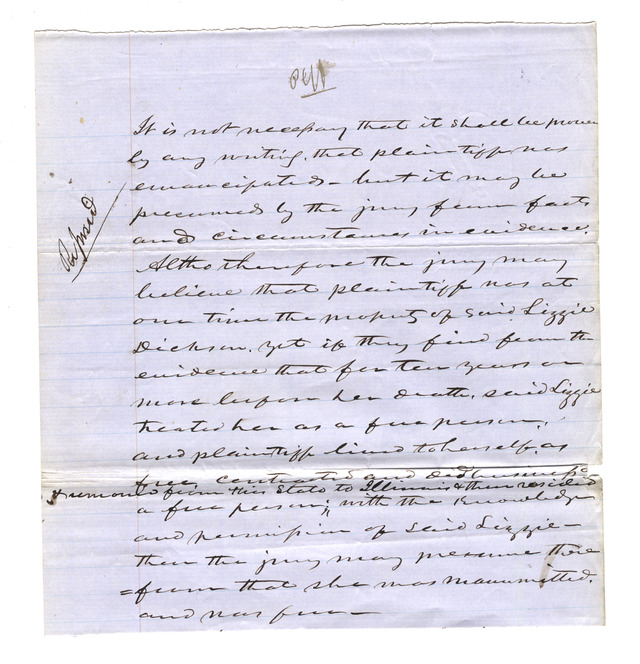 Plff
It is not necessary that it shall be proven
by any writing, that plaintiff was
emancipated – but it may be
presumed by the jury from facts
and circumstances in evidence.
Refused
Altho therefore the jury may
believe that plaintiff was at
one time the property of said Lizzie
Dickson, yet if they find from the
evidence that for ten years or
more before her death, said Lizzie
treated her as a free person,
and plaintiff lived to herself, as
free, contracted and did business
& removed from this State to Illinois & then resided
a free person, with the knowledge
and permission of said Lizzie –
then the jury may presume there
= from that she was manumitted,
and was free –